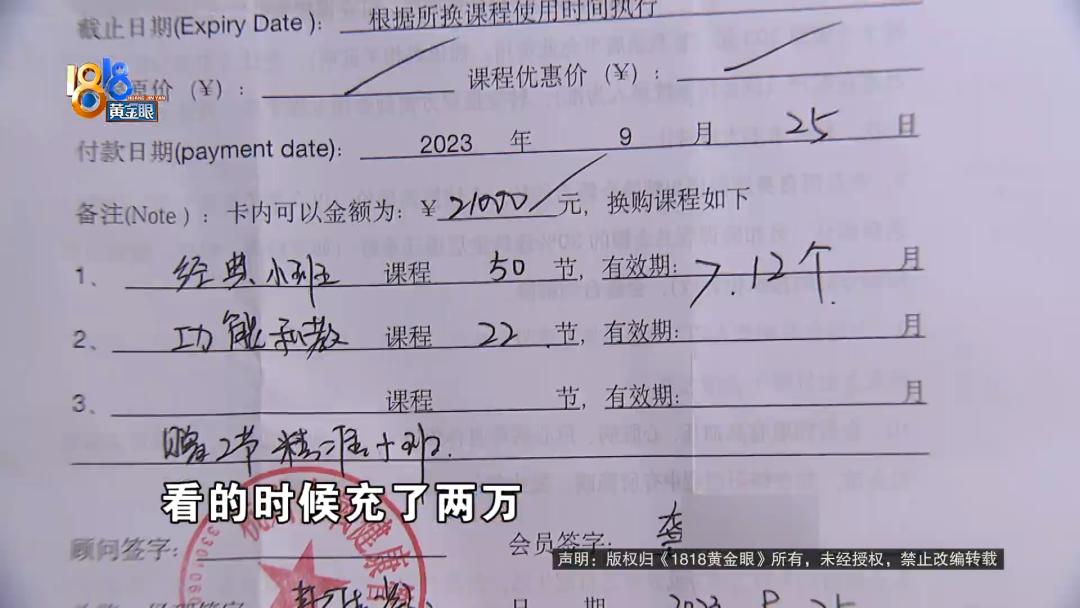 截止日期(Expiry Date): 根据所换课程使用时间执行
1818
HUANG JIN YAN
黄金眼
原价（¥）: 课程优惠价（¥）:
付款日期(payment date): 2023 年 9 月 25 日
备注(Note): 卡内可以金额为: ¥ 21000/ 元，换购课程如下
1、 经典小班 课程 50 节，有效期: 12个 月
2、 功能私教 课程 22 节，有效期: 月
3、 课程 节，有效期: 月
赠2节精准小班
看的时候充了两万
顾问签字: 会员签字:
声明：版权归《1818黄金眼》所有，未经授权，禁止改编转载
日 期 2023